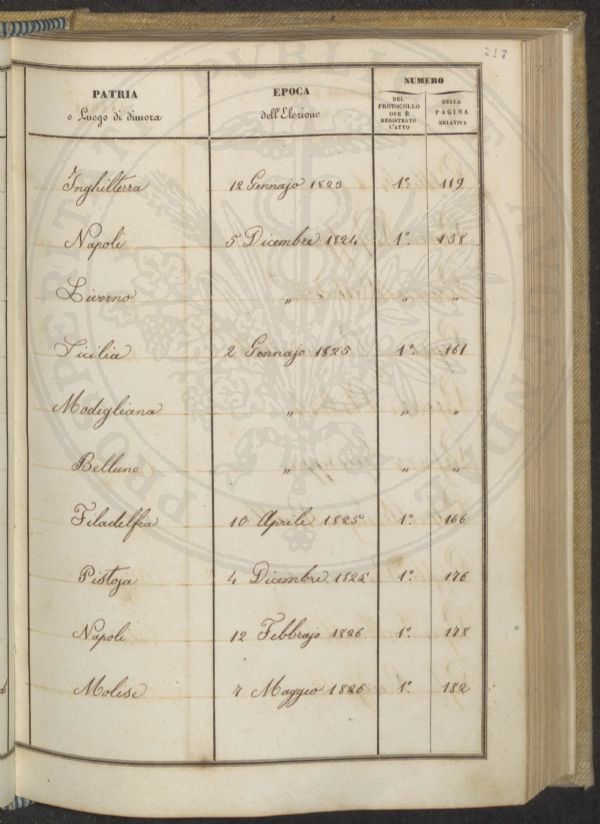 217
PATRIA
o Luogo di dimora
EPOCA
dell'Elezione
NUMERO
DEL PROTOCOLLO OVE È REGISTRATO L'ATTO
DELLA PAGINA RELATIVA
Inghilterra 12 Gennajo 1823 1º. 119
Napoli 5 Dicembre 1824 1º. 158
Livorno " " "
Sicilia 2 Gennajo 1825 1º. 161
Modigliana " " "
Belluno " " "
Filadelfia 10 Aprile 1825 1º. 166
Pistoja 4 Dicembre 1825 1º. 176
Napoli 12 Febbrajo 1826 1º. 178
Molise 7 Maggio 1826 1º. 182